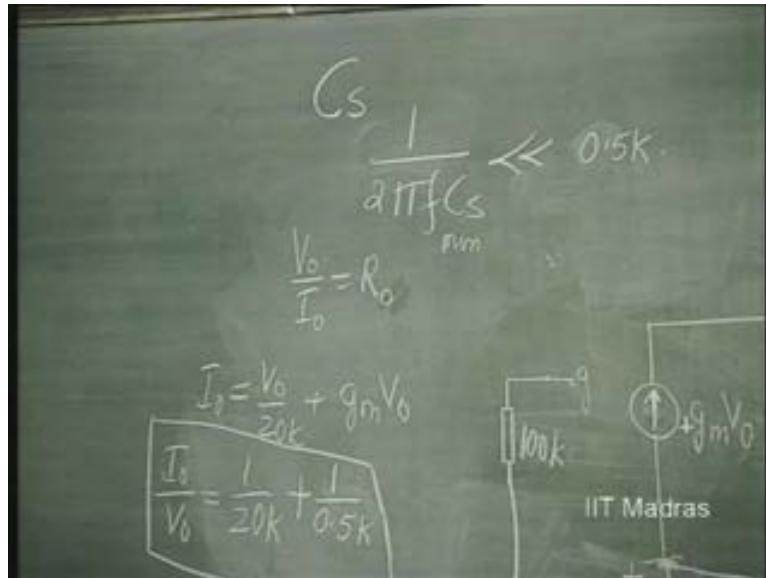 Cs
1
—— << 0.5K
2πfCs
min
V0/I0 = R0
I0 = V0/20K + gmV0
I0/V0 = 1/20K + 1/0.5K
g
100K
+gmV0
IIT Madras